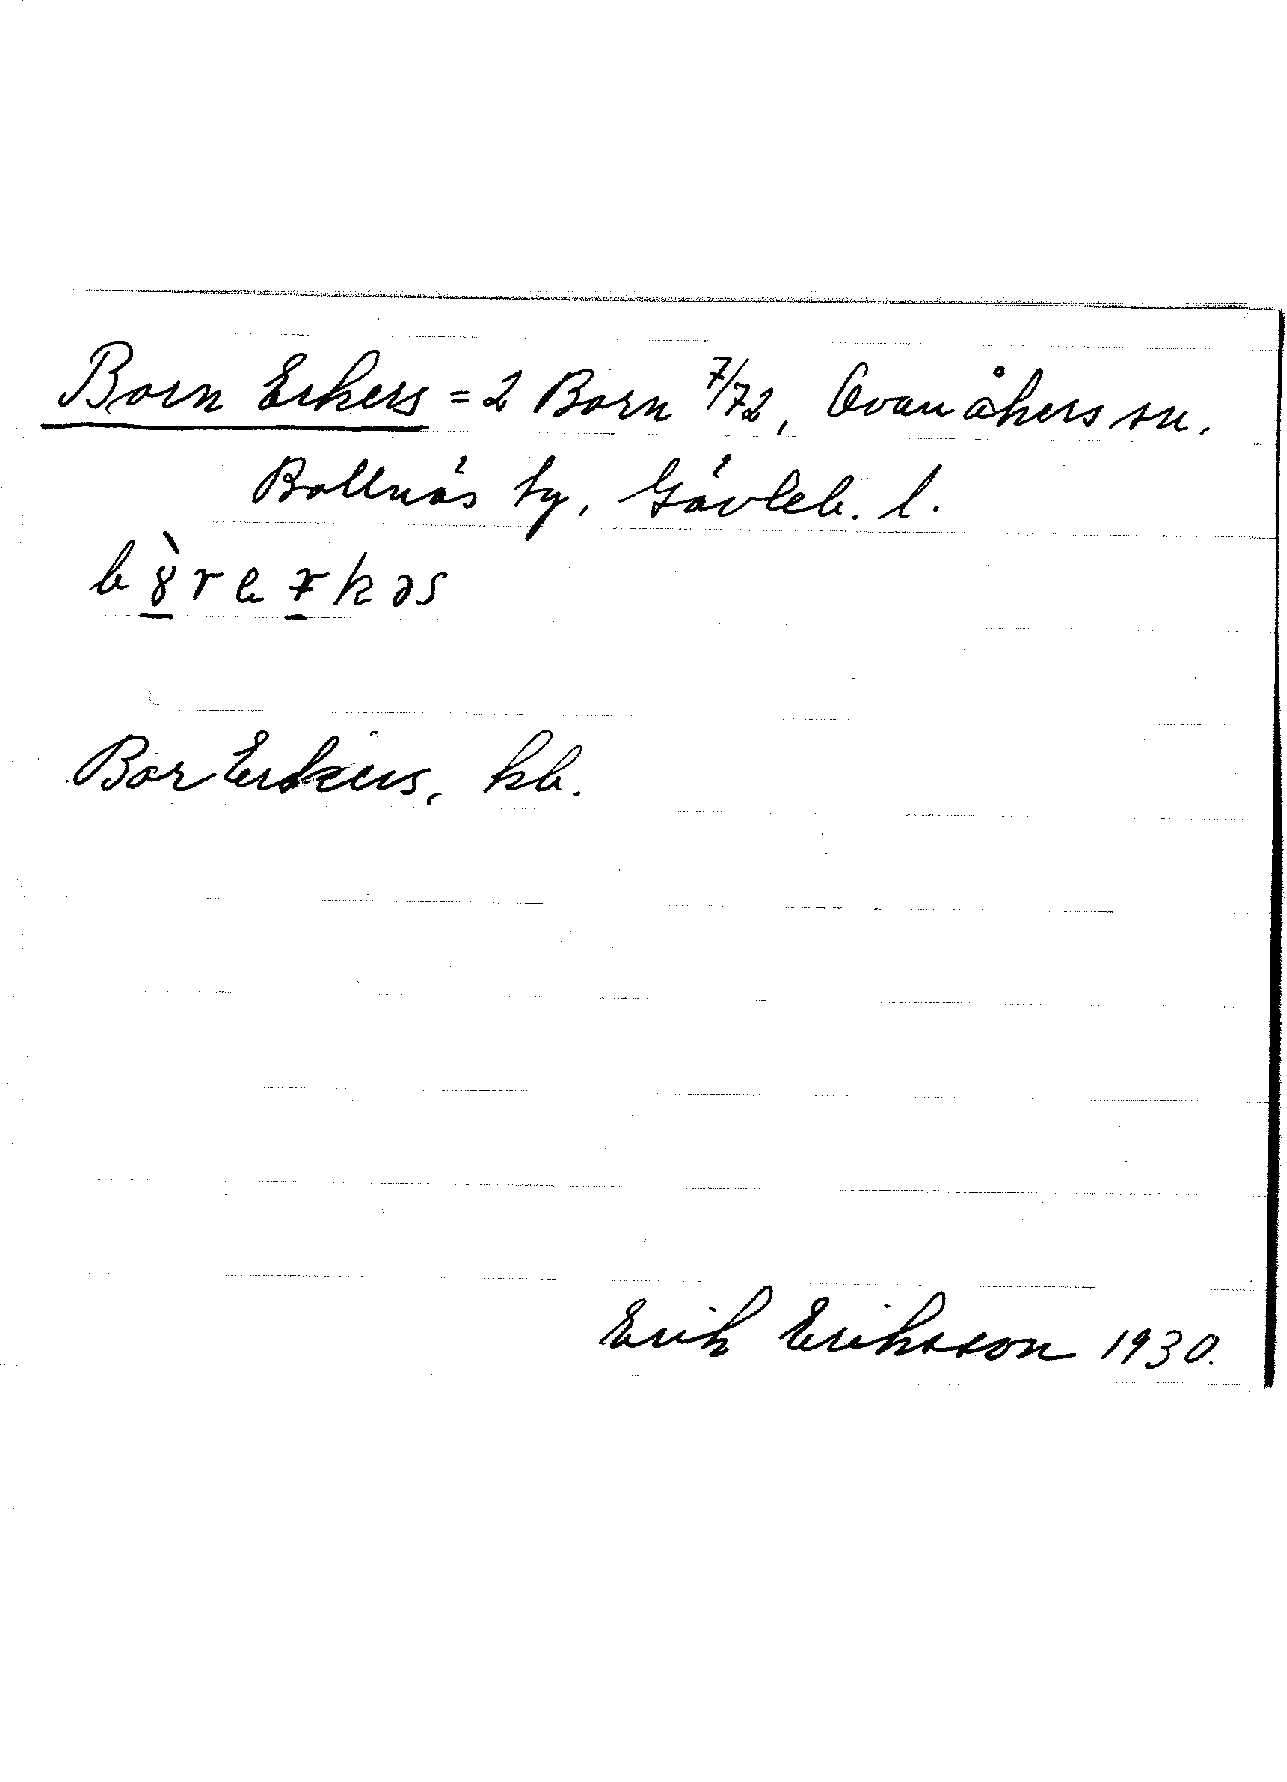 Born Erkers = 2 Born 7/72, Ovanåkers sn.
Bollnäs ty, Gävleb. l.
Bor Erkers, kb.
Erik Eriksson 1930.